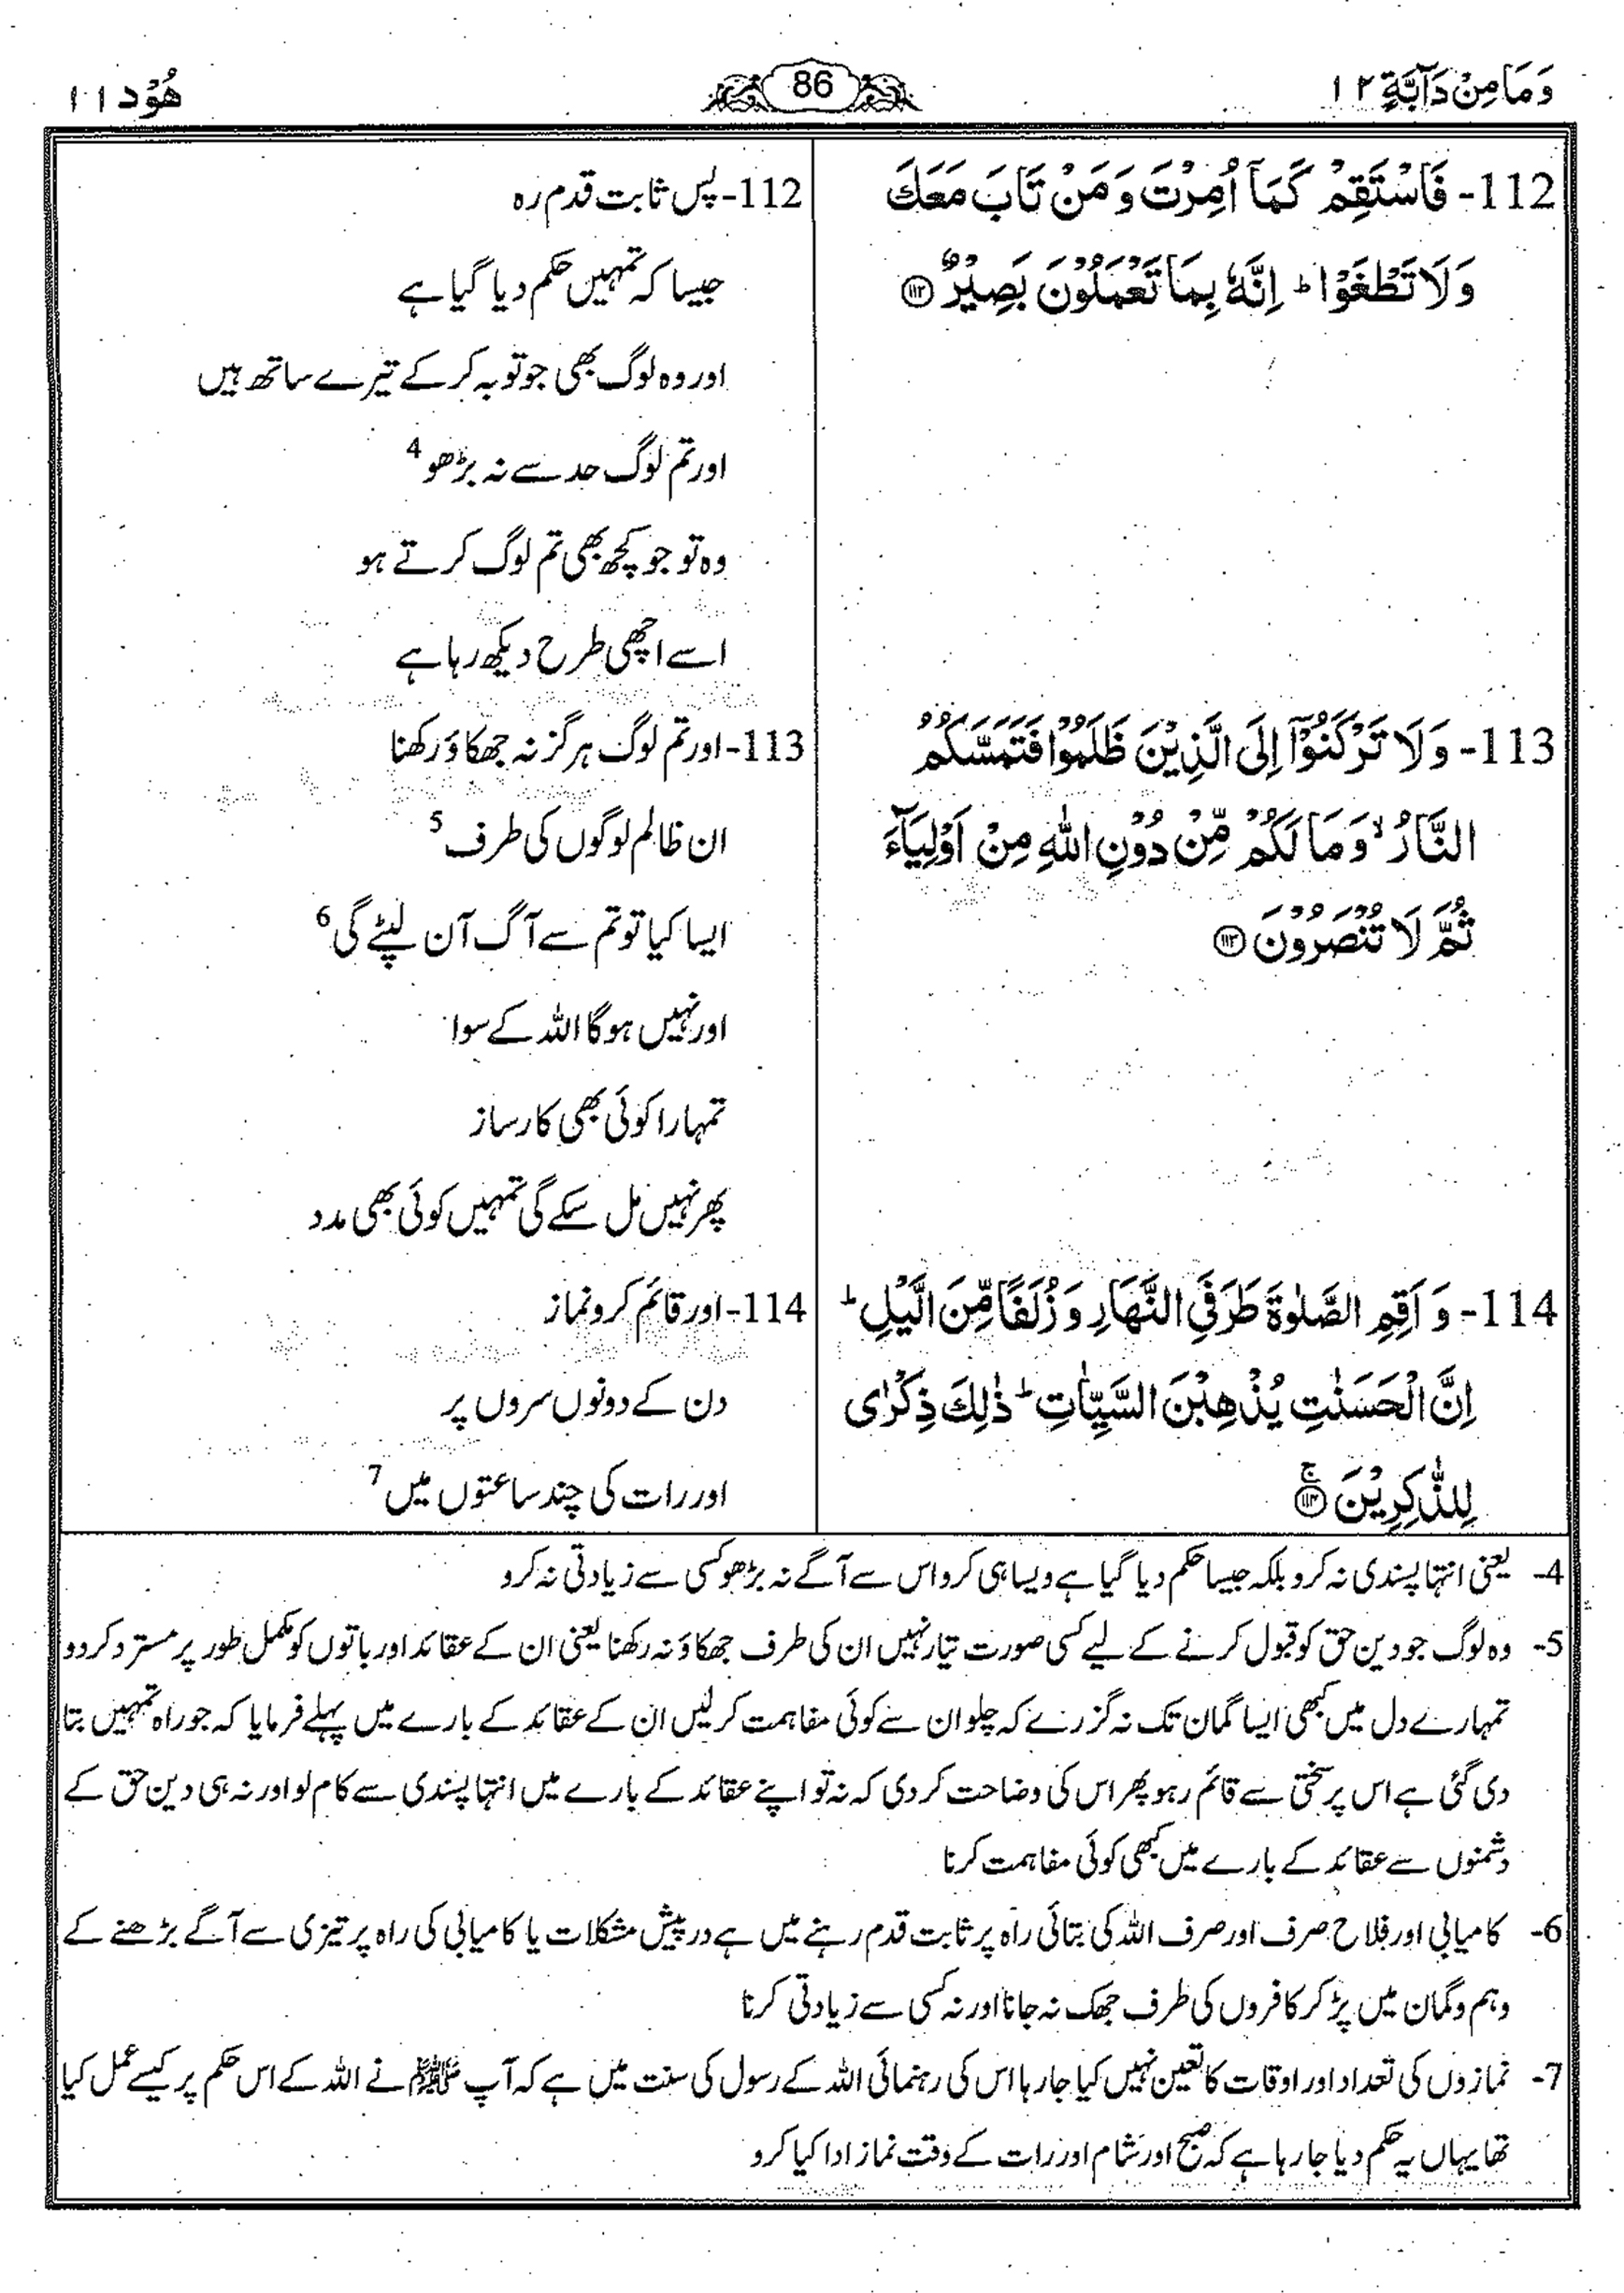 وَمَا مِنْ دَآبَّةٍ ۱۲
86
هُوْد ۱۱
112- فَاسْتَقِمْ كَمَآ اُمِرْتَ وَ مَنْ تَابَ مَعَكَ
وَلَا تَطْغَوْا ؕ اِنَّهٗ بِمَا تَعْمَلُوْنَ بَصِيْرٌ ﴿۱۱۲﴾
113- وَ لَا تَرْكَنُوْٓا اِلَى الَّذِيْنَ ظَلَمُوْا فَتَمَسَّكُمُ
النَّارُ ۙ وَ مَا لَكُمْ مِّنْ دُوْنِ اللّٰهِ مِنْ اَوْلِيَآءَ
ثُمَّ لَا تُنْصَرُوْنَ ﴿۱۱۳﴾
114- وَ اَقِمِ الصَّلٰوةَ طَرَفَيِ النَّهَارِ وَ زُلَفًا مِّنَ الَّيْلِ ؕ
اِنَّ الْحَسَنٰتِ يُذْهِبْنَ السَّيِّاٰتِ ؕ ذٰلِكَ ذِكْرٰى
لِلذّٰكِرِيْنَ ۚ﴿۱۱۴﴾
112- پس ثابت قدم رہ
جیسا کہ تمہیں حکم دیا گیا ہے
اور وہ لوگ بھی جو توبہ کر کے تیرے ساتھ ہیں
اور تم لوگ حد سے نہ بڑھو 4
وہ تو جو کچھ بھی تم لوگ کرتے ہو
اسے اچھی طرح دیکھ رہا ہے
113- اور تم لوگ ہرگز نہ جھکاؤ رکھنا
ان ظالم لوگوں کی طرف 5
ایسا کیا تو تم سے آگ آن لپٹے گی 6
اور نہیں ہوگا اللہ کے سوا
تمہارا کوئی بھی کارساز
پھر نہیں مل سکے گی تمہیں کوئی بھی مدد
114- اور قائم کرو نماز
دن کے دونوں سروں پر
اور رات کی چند ساعتوں میں 7
4- یعنی انتہا پسندی نہ کرو بلکہ جیسا حکم دیا گیا ہے ویسا ہی کرو اس سے آگے نہ بڑھو کسی سے زیادتی نہ کرو
5- وہ لوگ جو دین حق کو قبول کرنے کے لیے کسی صورت تیار نہیں ان کی طرف جھکاؤ نہ رکھنا یعنی ان کے عقائد اور باتوں کو مکمل طور پر مسترد کر دو
تمہارے دل میں کبھی ایسا گمان تک نہ گزرے کہ چلو ان سے کوئی مفاہمت کر لیں ان کے عقائد کے بارے میں پہلے فرمایا کہ جو راہ تمہیں بتا
دی گئی ہے اس پر سختی سے قائم رہو پھر اس کی وضاحت کر دی کہ نہ تو اپنے عقائد کے بارے میں انتہا پسندی سے کام لو اور نہ ہی دین حق کے
دشمنوں سے عقائد کے بارے میں کبھی کوئی مفاہمت کرنا
6- کامیابی اور فلاح صرف اور صرف اللہ کی بتائی راہ پر ثابت قدم رہنے میں ہے درپیش مشکلات یا کامیابی کی راہ پر تیزی سے آگے بڑھنے کے
وہم و گمان میں پڑ کر کافروں کی طرف جھک نہ جانا اور نہ کسی سے زیادتی کرنا
7- نمازوں کی تعداد اور اوقات کا تعین نہیں کیا جا رہا اس کی رہنمائی اللہ کے رسول کی سنت میں ہے کہ آپ ﷺ نے اللہ کے اس حکم پر کیسے عمل کیا
تھا یہاں یہ حکم دیا جا رہا ہے کہ صبح اور شام اور رات کے وقت نماز ادا کیا کرو